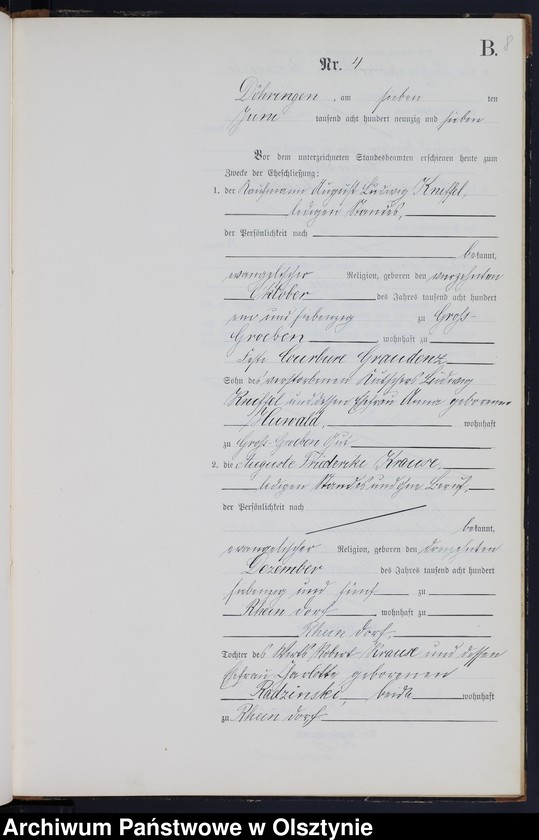 B. 8
Nr. 4
Döhringen, am sieben ten
Juni tausend acht hundert neunzig und sieben
Vor dem unterzeichneten Standesbeamten erschienen heute zum
Zwecke der Eheschließung:
1. der Kaufmann August Ludwig Knéffel,
ledigen Standes,
der Persönlichkeit nach
bekannt,
evangelischer Religion, geboren den vierzehnten
Oktober des Jahres tausend acht hundert
ein und siebenzig zu Groß-
Groeben, wohnhaft zu
Feste Courbiere Graudenz
Sohn des verstorbenen Kutschers Ludwig
Kneffel und dessen Ehefrau Anna geborenen
wohnhaft
zu Groß-Groeben Gut
2. die Auguste Friedericke Krause,
ledigen Standes und ohne Beruf,
der Persönlichkeit nach
bekannt,
evangelischer Religion, geboren den
Dezember des Jahres tausend acht hundert
siebenzig und fünf zu
Rhein dorf, wohnhaft zu
Rhein dorf,
Tochter des Wirts Robert Krause und dessen
Ehefrau Carlotte geborenen
Radzinski, beide wohnhaft
zu Rhein dorf
Archiwum Państwowe w Olsztynie